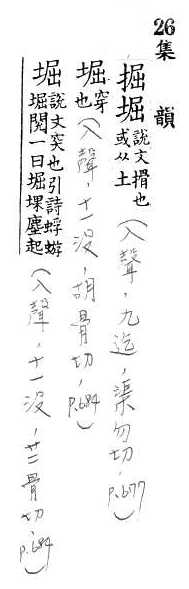 26集　韻
掘堀說文搰也或从土(入聲，九迄，渠勿切，p.677)
堀穿也(入聲，十一没，胡骨切，p.684)
堀說文突也引詩蜉蝣堀閱一曰堀堁塵起(入聲，十一没，苦骨切，p.684)